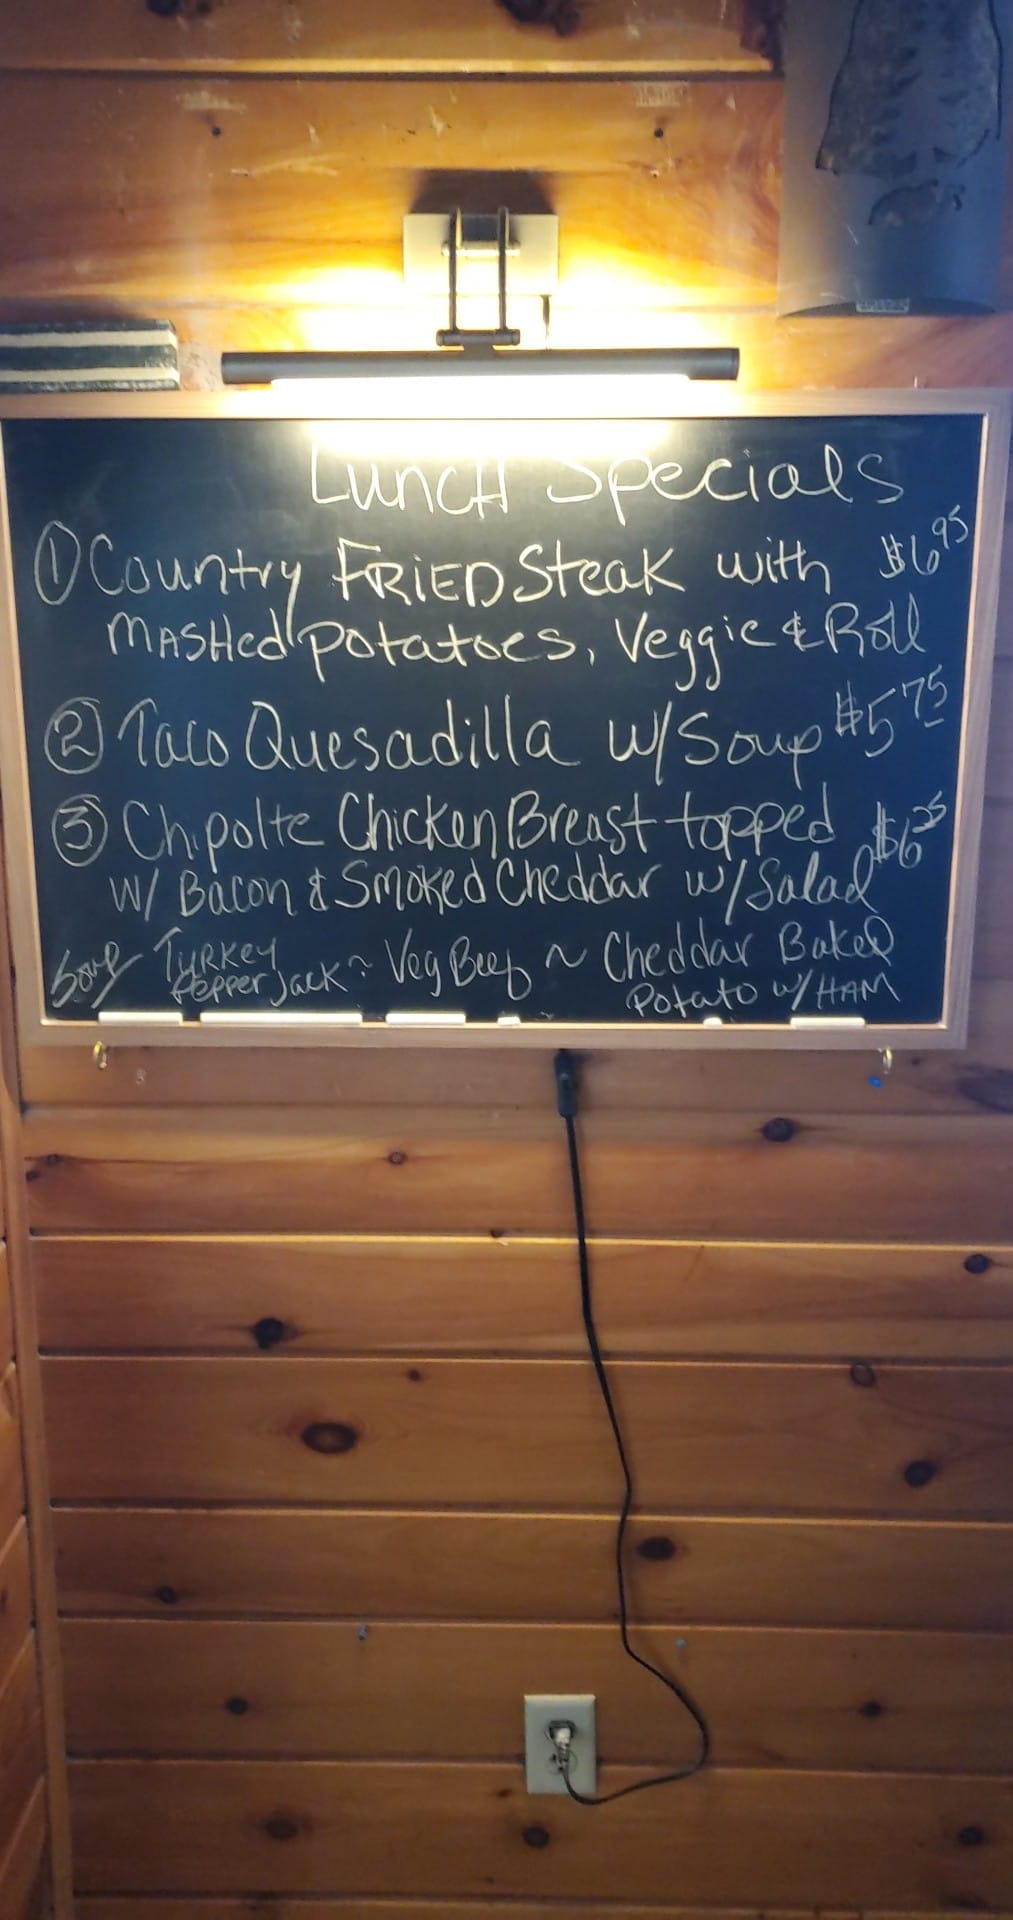 Lunch Specials
① Country Fried Steak with $6.95
Mashed potatoes, Veggie & Roll
② Taco Quesadilla w/ Soup $5.75
③ Chipolte Chicken Breast topped
w/ Bacon & Smoked Cheddar w/ Salad
Soup Turkey Pepper Jack ~ Veg Beef ~ Cheddar Baked
Potato w/ Ham